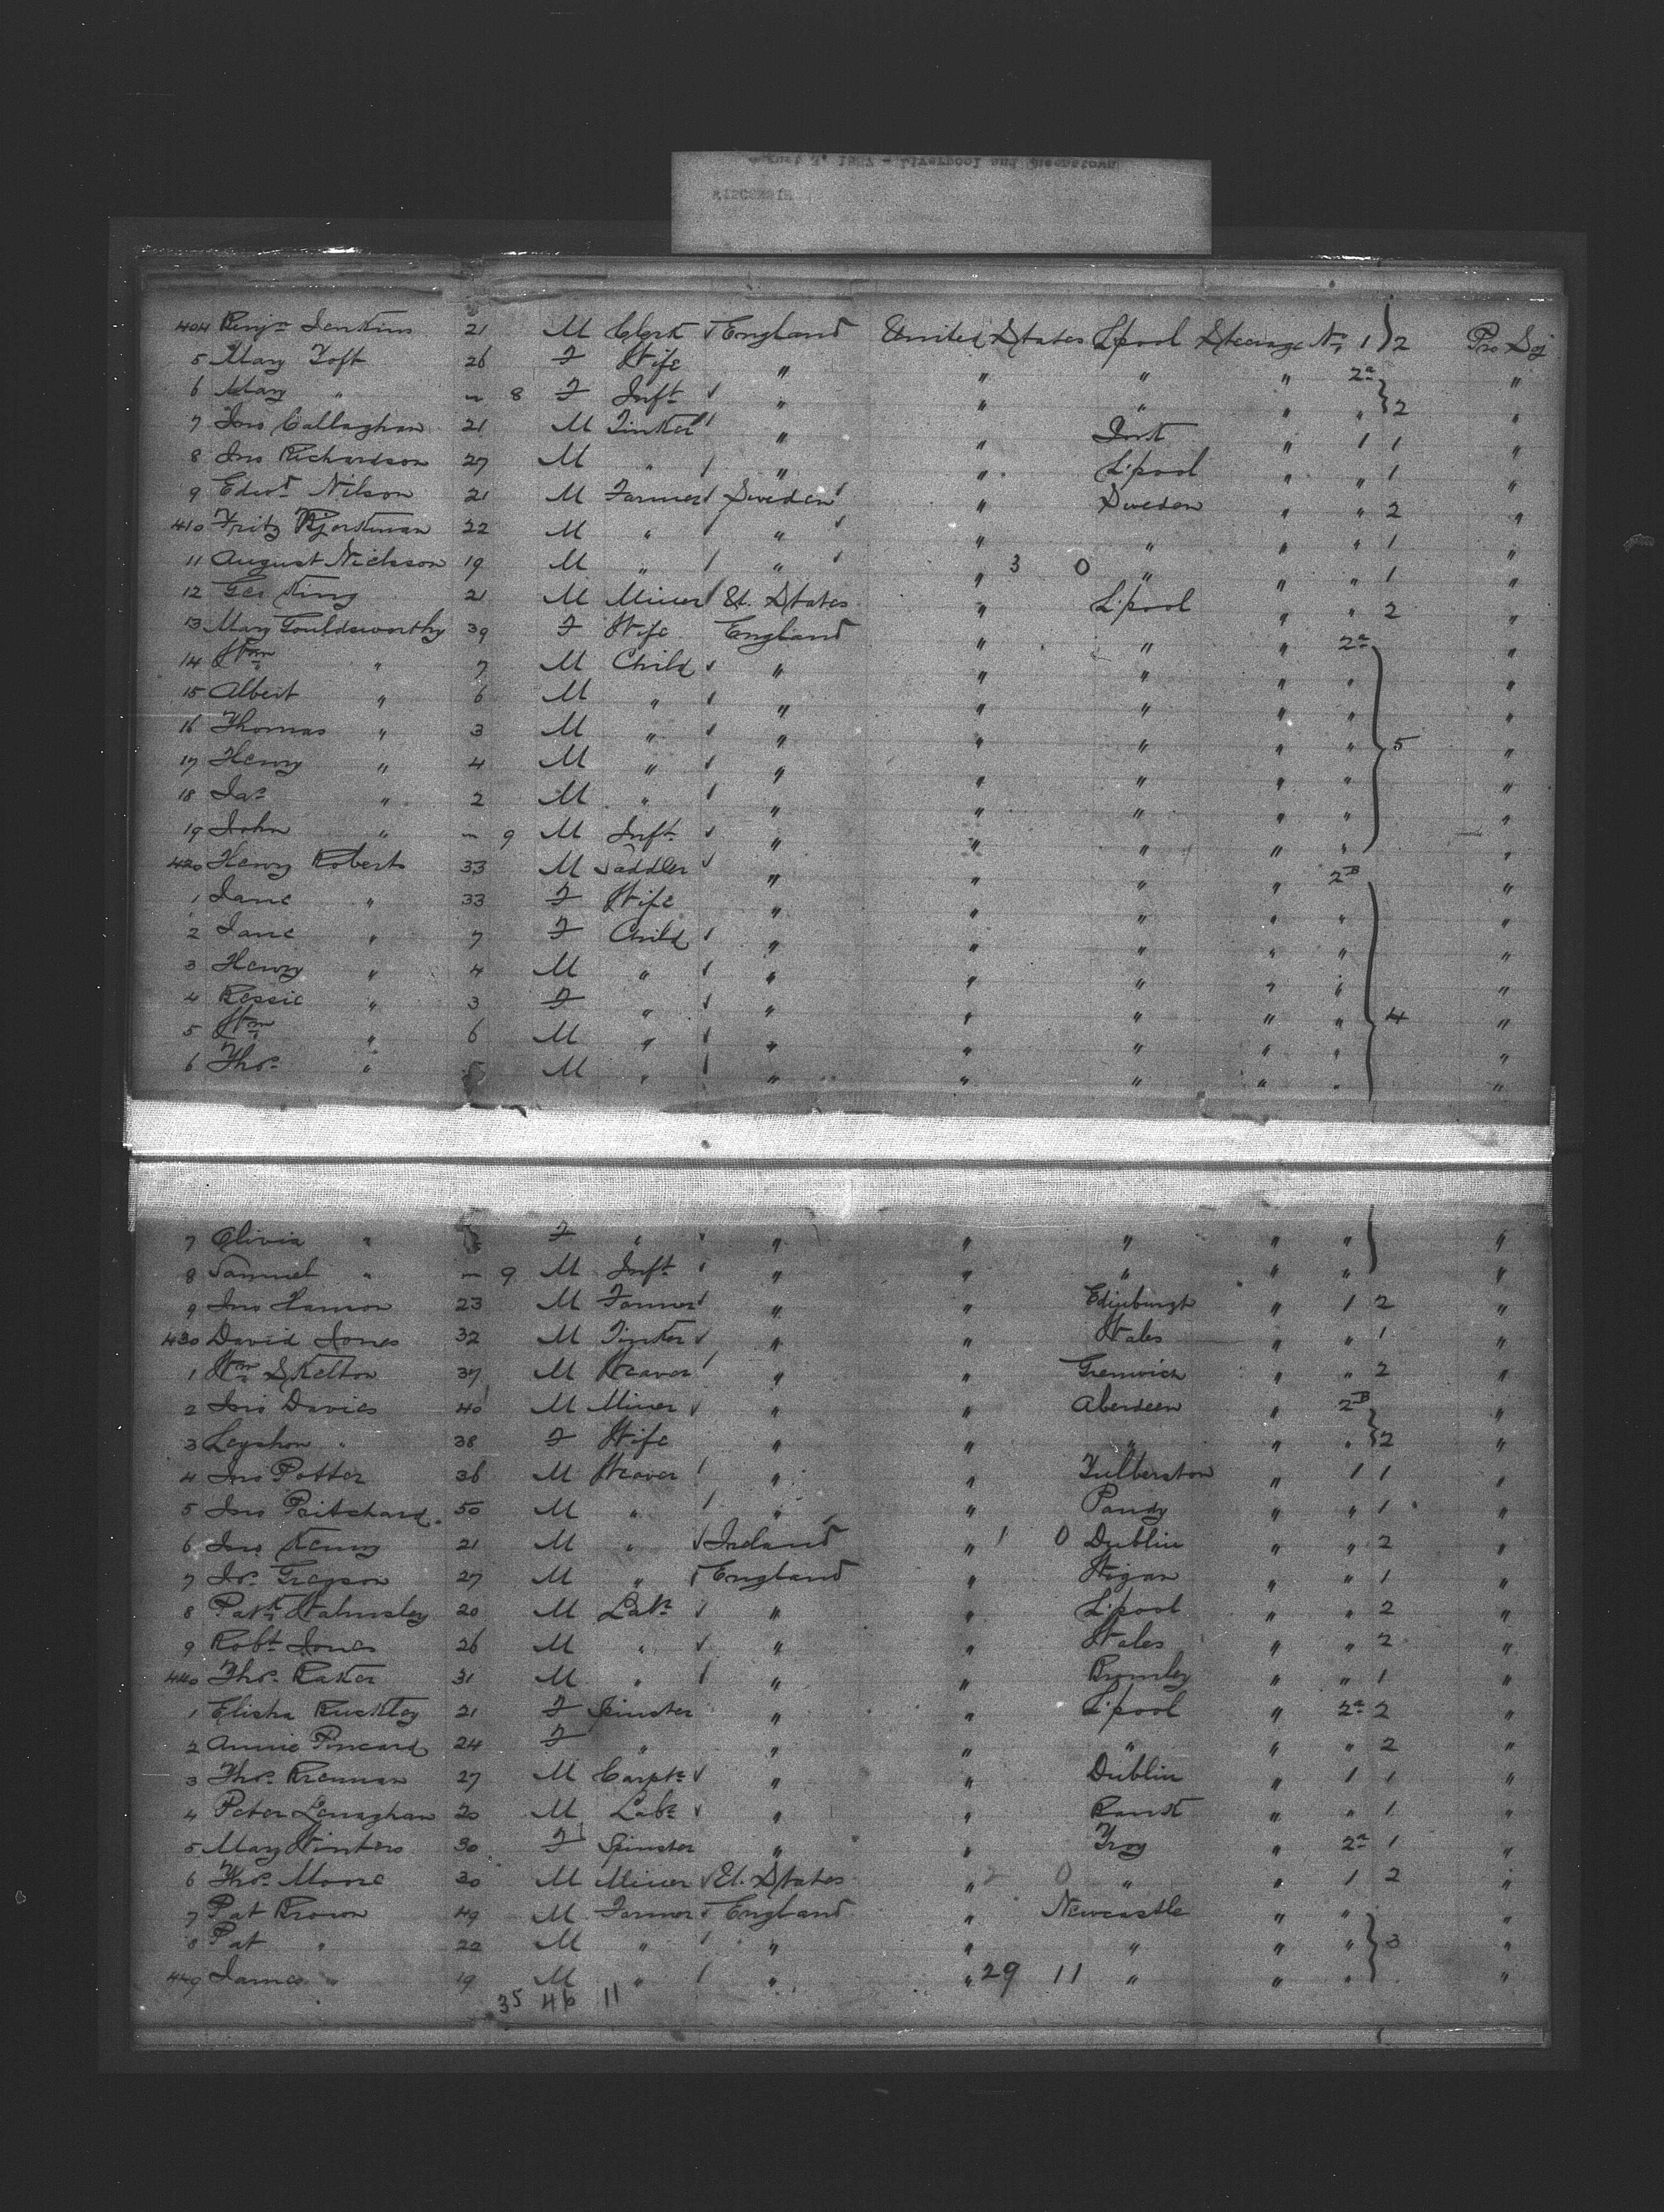 August 3, 1887 - Liverpool and Queenstown
WISCONSIN
404 Benjn Jenkins 21 M Clerk England United States L'pool Steerage No 1 2 Pro Soj
5 Mary Toft 26 F Wife " " " " 2a "
6 Mary " ~ 8 F Inft " " " " " 2 "
7 Jno Callaghan 21 M Tinker " " " 1 1 "
8 Jno Richardson 27 M " " " L'pool " " 1 "
9 Edwd Nilson 21 M Farmer Sweden " Sweden " " 2 "
410 Fritz Bjorkman 22 M " " " " " " 1 "
11 August Nielsson 19 M " " " 3 0 " " " 1 "
12 Geo King 21 M Miner U. States " L'pool " " 2 "
13 Mary Gouldsworthy 39 F Wife England " " " 2a "
14 Wm " 7 M Child " " " " " "
15 Albert " 6 M " " " " " " "
16 Thomas " 3 M " " " " " " 5 "
17 Henry " 4 M " " " " " " "
18 Jas " 2 M " " " " " " "
19 John " ~ 9 M Inft " " " " " "
420 Henry Roberts 33 M Saddler " " " " 2B "
1 Jane " 33 F Wife " " " " " "
2 Jane " 7 F Child " " " " " "
3 Henry " 4 M " " " " " " "
4 Bessie " 3 F " " " " " " 4 "
5 Wm " 6 M " " " " " " "
6 Thos " 5 M " " " " " " "
7 Olivia " F " " " " " " "
8 Samuel " ~ 9 M Inft " " " " " "
9 Jno Hanson 23 M Farmer " " Edinburgh " 1 2 "
430 David Jones 32 M Tinker " " Wales " " 1 "
1 Wm Skelton 37 M Weaver " " Grenwich " " 2 "
2 Jno Davies 40 M Miner " " Aberdeen " 2B "
3 Leyshon " 38 F Wife " " " " " 2 "
4 Jno Potter 36 M Weaver " " " 1 1 "
5 Jno Pritchard 50 M " " " Pandy " " 1 "
6 Jno Kenny 21 M " Ireland " 1 0 Dublin " " 2 "
7 Jos Grayson 27 M " England " Wigan " " 1 "
8 Patk Walmsley 20 M Labr " " L'pool " " 2 "
9 Robt Jones 26 M " " " Wales " " 2 "
440 Thos Baker 31 M " " " Bromley " " 1 "
1 Elisha Buckley 21 F Spinster " " L'pool " 2a 2 "
2 Annie Pincard 24 F " " " " " " 2 "
3 Thos Brennan 27 M Carptr " " Dublin " 1 1 "
4 Peter Lenaghan 20 M Labr " " " " 1 "
5 Mary Winters 30 F Spinster " " Troy " 2a 1 "
6 Thos Moore 30 M Miner U. States " 2 0 " " 1 2 "
7 Pat Brown 49 M Farmer England " Newcastle " " "
8 Pat " 22 M " " " " " " 3 "
449 James " 19 M " " " 29 11 " " " "
35 46 11